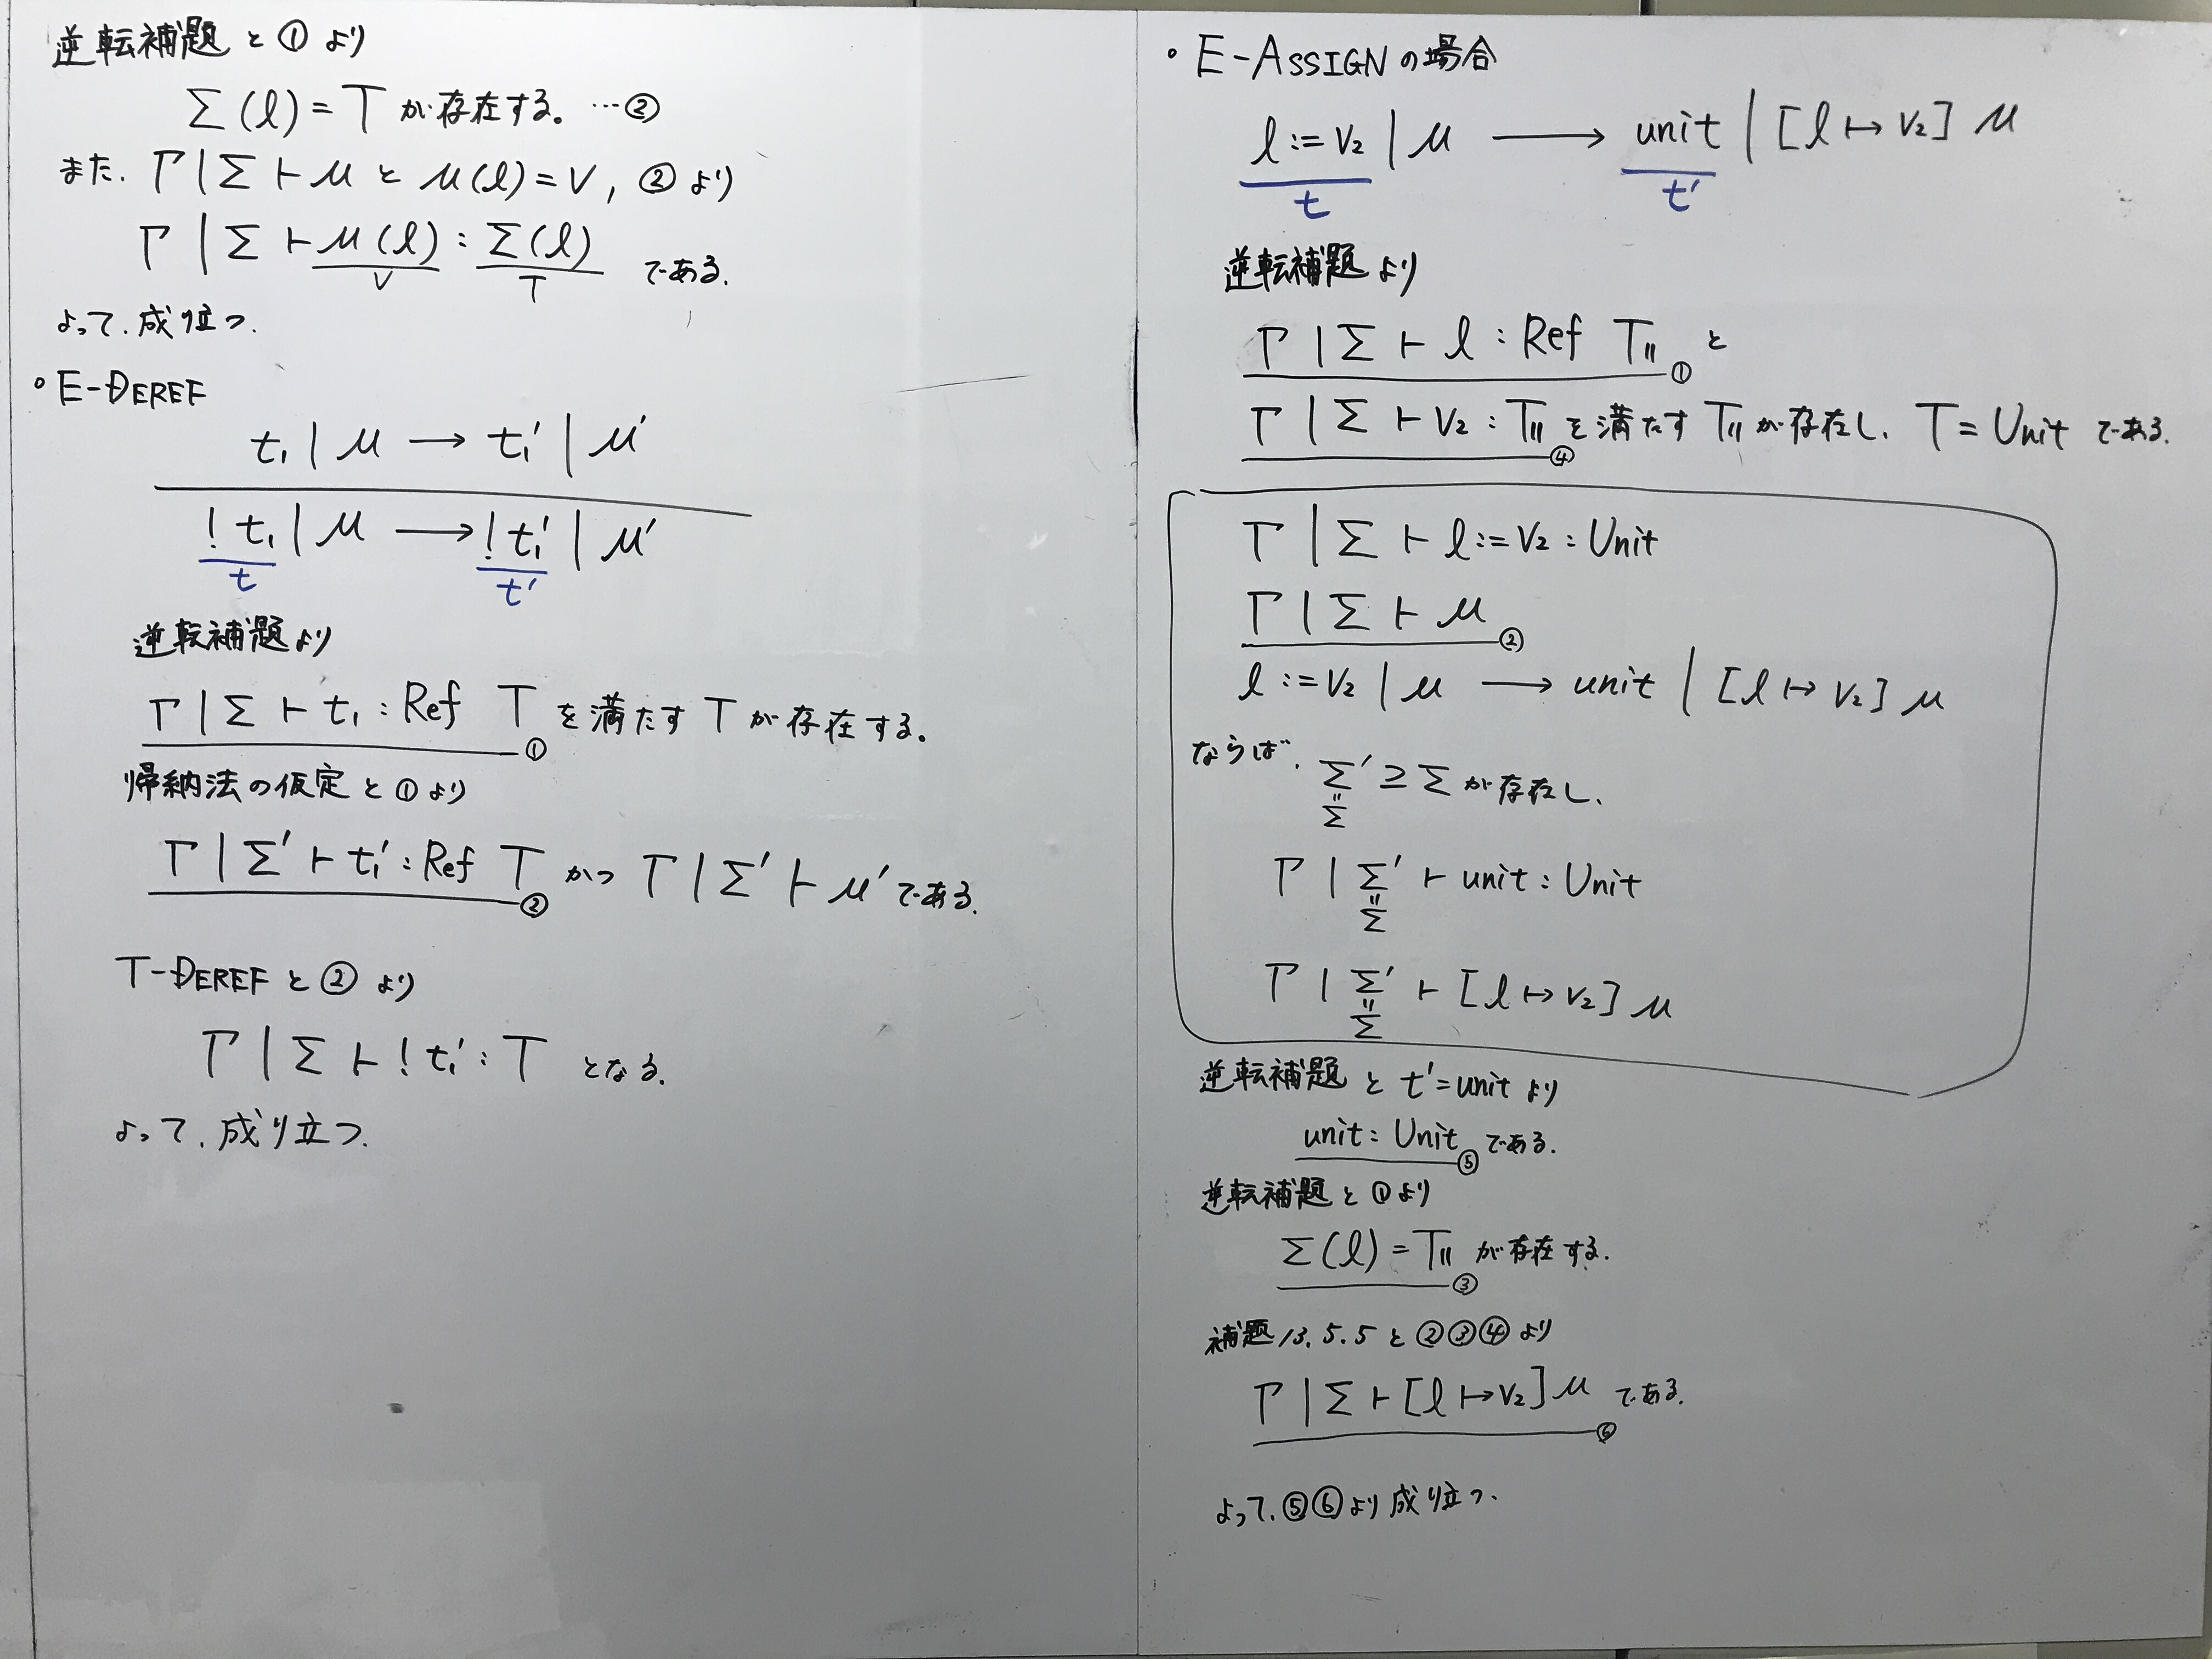 逆転補題 と ① より
Σ(l) = T が存在する。 …②
また、Γ | Σ ⊢ μ と μ(l) = v, ② より
Γ | Σ ⊢ μ(l) : Σ(l) である.
v T
よって、成り立つ.
• E-DEREF
t₁ | μ → t₁' | μ'
! t₁ | μ → ! t₁' | μ'
t t'
逆転補題より
Γ | Σ ⊢ t₁ : Ref T ① を満たす T が存在する。
帰納法の仮定と ① より
Γ | Σ' ⊢ t₁' : Ref T ② かつ Γ | Σ' ⊢ μ' である.
T-DEREF と ② より
Γ | Σ ⊢ ! t₁' : T となる.
よって、成り立つ.
• E-ASSIGN の場合
l := v₂ | μ → unit | [l ↦ v₂] μ
t t'
逆転補題より
Γ | Σ ⊢ l : Ref T₁₁ ① と
Γ | Σ ⊢ v₂ : T₁₁ ④ を満たす T₁₁ が存在し、T = Unit である.
Γ | Σ ⊢ l := v₂ : Unit
Γ | Σ ⊢ μ ②
l := v₂ | μ → unit | [l ↦ v₂] μ
ならば、Σ' ⊇ Σ が存在し、
"
Σ
Γ | Σ' ⊢ unit : Unit
"
Σ
Γ | Σ' ⊢ [l ↦ v₂] μ
"
Σ
逆転補題 と t' = unit より
unit : Unit ⑤ である.
逆転補題 と ① より
Σ(l) = T₁₁ ③ が存在する.
補題 13.5.5 と ②③④ より
Γ | Σ ⊢ [l ↦ v₂] μ ⑥ である.
よって、⑤⑥より 成り立つ.